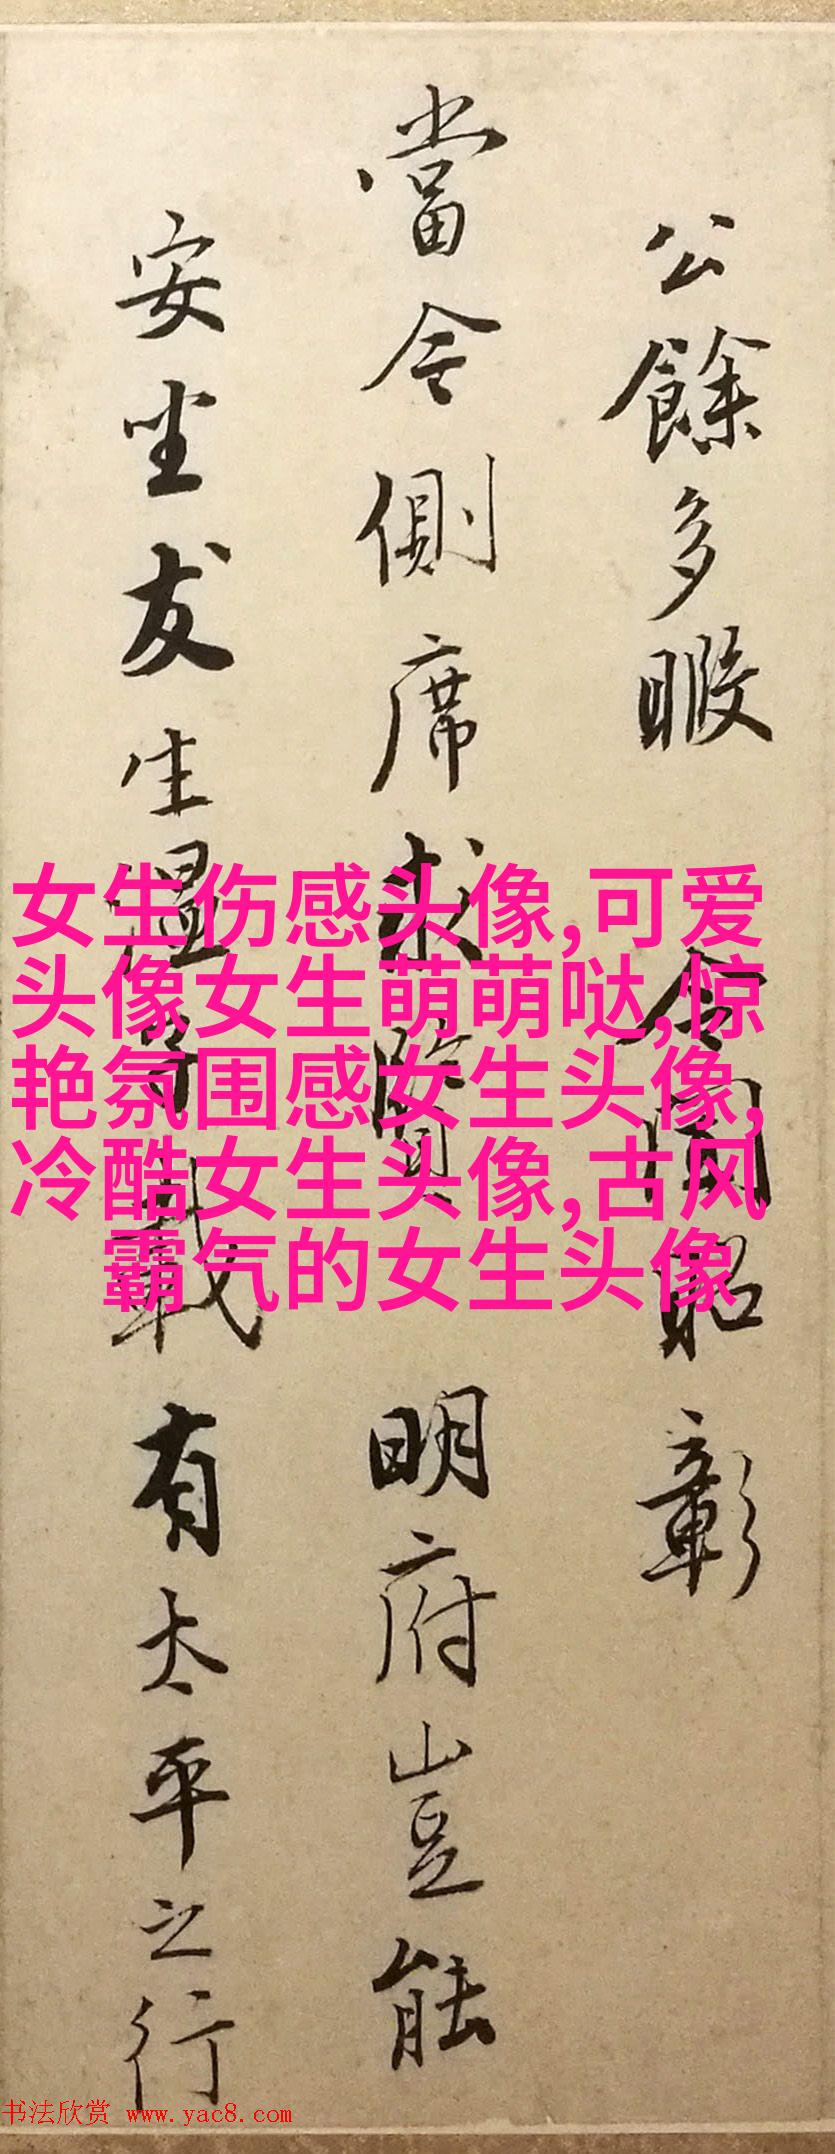 公餘多暇 令聞昭彰
當令側席求賢 明府豈能
安坐友生溫尋載有太平之行
女生伤感头像,可爱
头像女生萌萌哒,惊
艳氛围感女生头像,
冷酷女生头像,古风
霸气的女生头像
书法欣赏 www.yac8.com